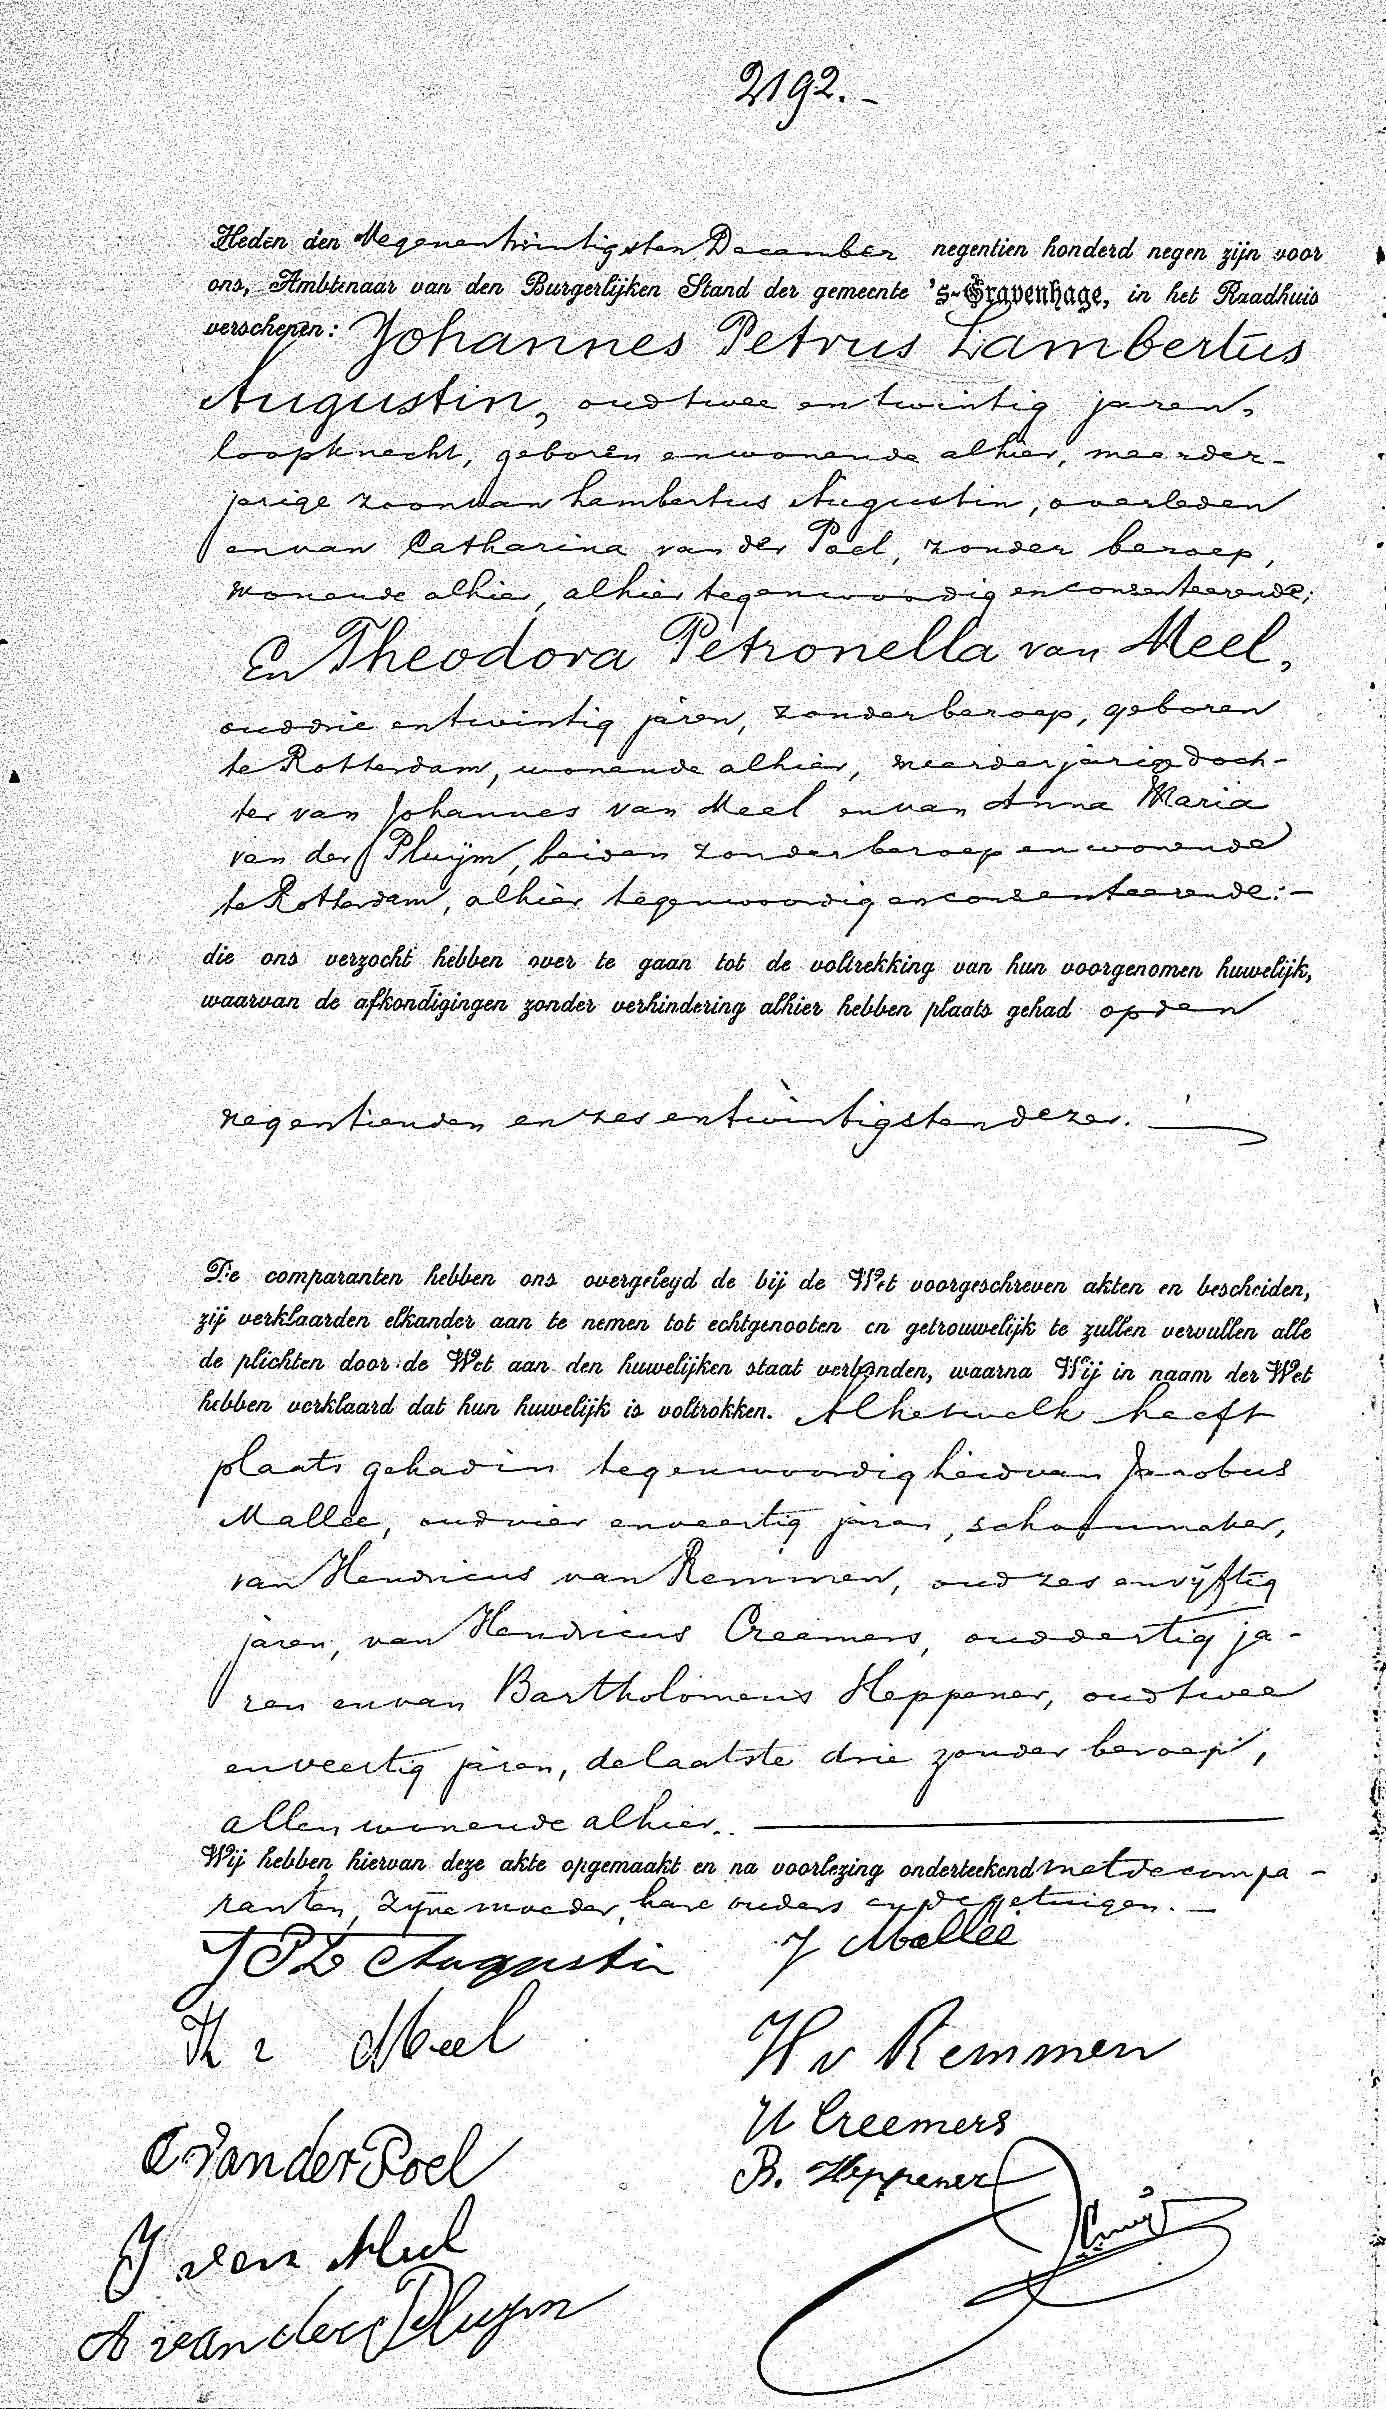 2192.-
Heden den Negenentwintigsten December negentien honderd negen zijn voor
ons, Ambtenaar van den Burgerlijken Stand der gemeente 's-Gravenhage, in het Raadhuis
verschenen: Johannes Petrus Lambertus
Augustin, oud twee en twintig jaren,
loopknecht, geboren en wonende alhier, meerder-
jarige zoon van Lambertus Augustin, overleden
en van Catharina van der Poel, zonder beroep,
wonende alhier, alhier tegenwoordig en consenteerende;
En Theodora Petronella van Meel,
oud drie en twintig jaren, zonder beroep, geboren
te Rotterdam, wonende alhier, meerderjarige doch-
ter van Johannes van Meel en van Anna Maria
van der Pluijm, beiden zonder beroep en wonende
te Rotterdam, alhier tegenwoordig en consenteerende:-
die ons verzocht hebben over te gaan tot de voltrekking van hun voorgenomen huwelijk,
waarvan de afkondigingen zonder verhindering alhier hebben plaats gehad op den
negentienden en zes en twintigsten dezer.
De comparanten hebben ons overgelegd de bij de Wet voorgeschreven akten en bescheiden,
zij verklaarden elkander aan te nemen tot echtgenooten en getrouwelijk te zullen vervullen alle
de plichten door de Wet aan den huwelijken staat verbonden, waarna Wij in naam der Wet
hebben verklaard dat hun huwelijk is voltrokken. Al hetwelk heeft
plaats gehad in tegenwoordigheid van Jacobus
Mallée, oud vier en veertig jaren, schoenmaker,
van Hendricus van Remmen, oud zes en vijftig
jaren, van Hendricus Creemers, oud dertig ja-
ren en van Bartholomeus Heppener, oud twee
en veertig jaren, de laatste drie zonder beroep,
allen wonende alhier.
Wij hebben hiervan deze akte opgemaakt en na voorlezing onderteekend met de compa-
ranten, zijne moeder, hare ouders en de getuigen.-
J P L Augustin
J Mallée
Th v Meel
H v Remmen
C van der Poel
H Creemers
B. Heppener
J van Meel
A van der Pluijm